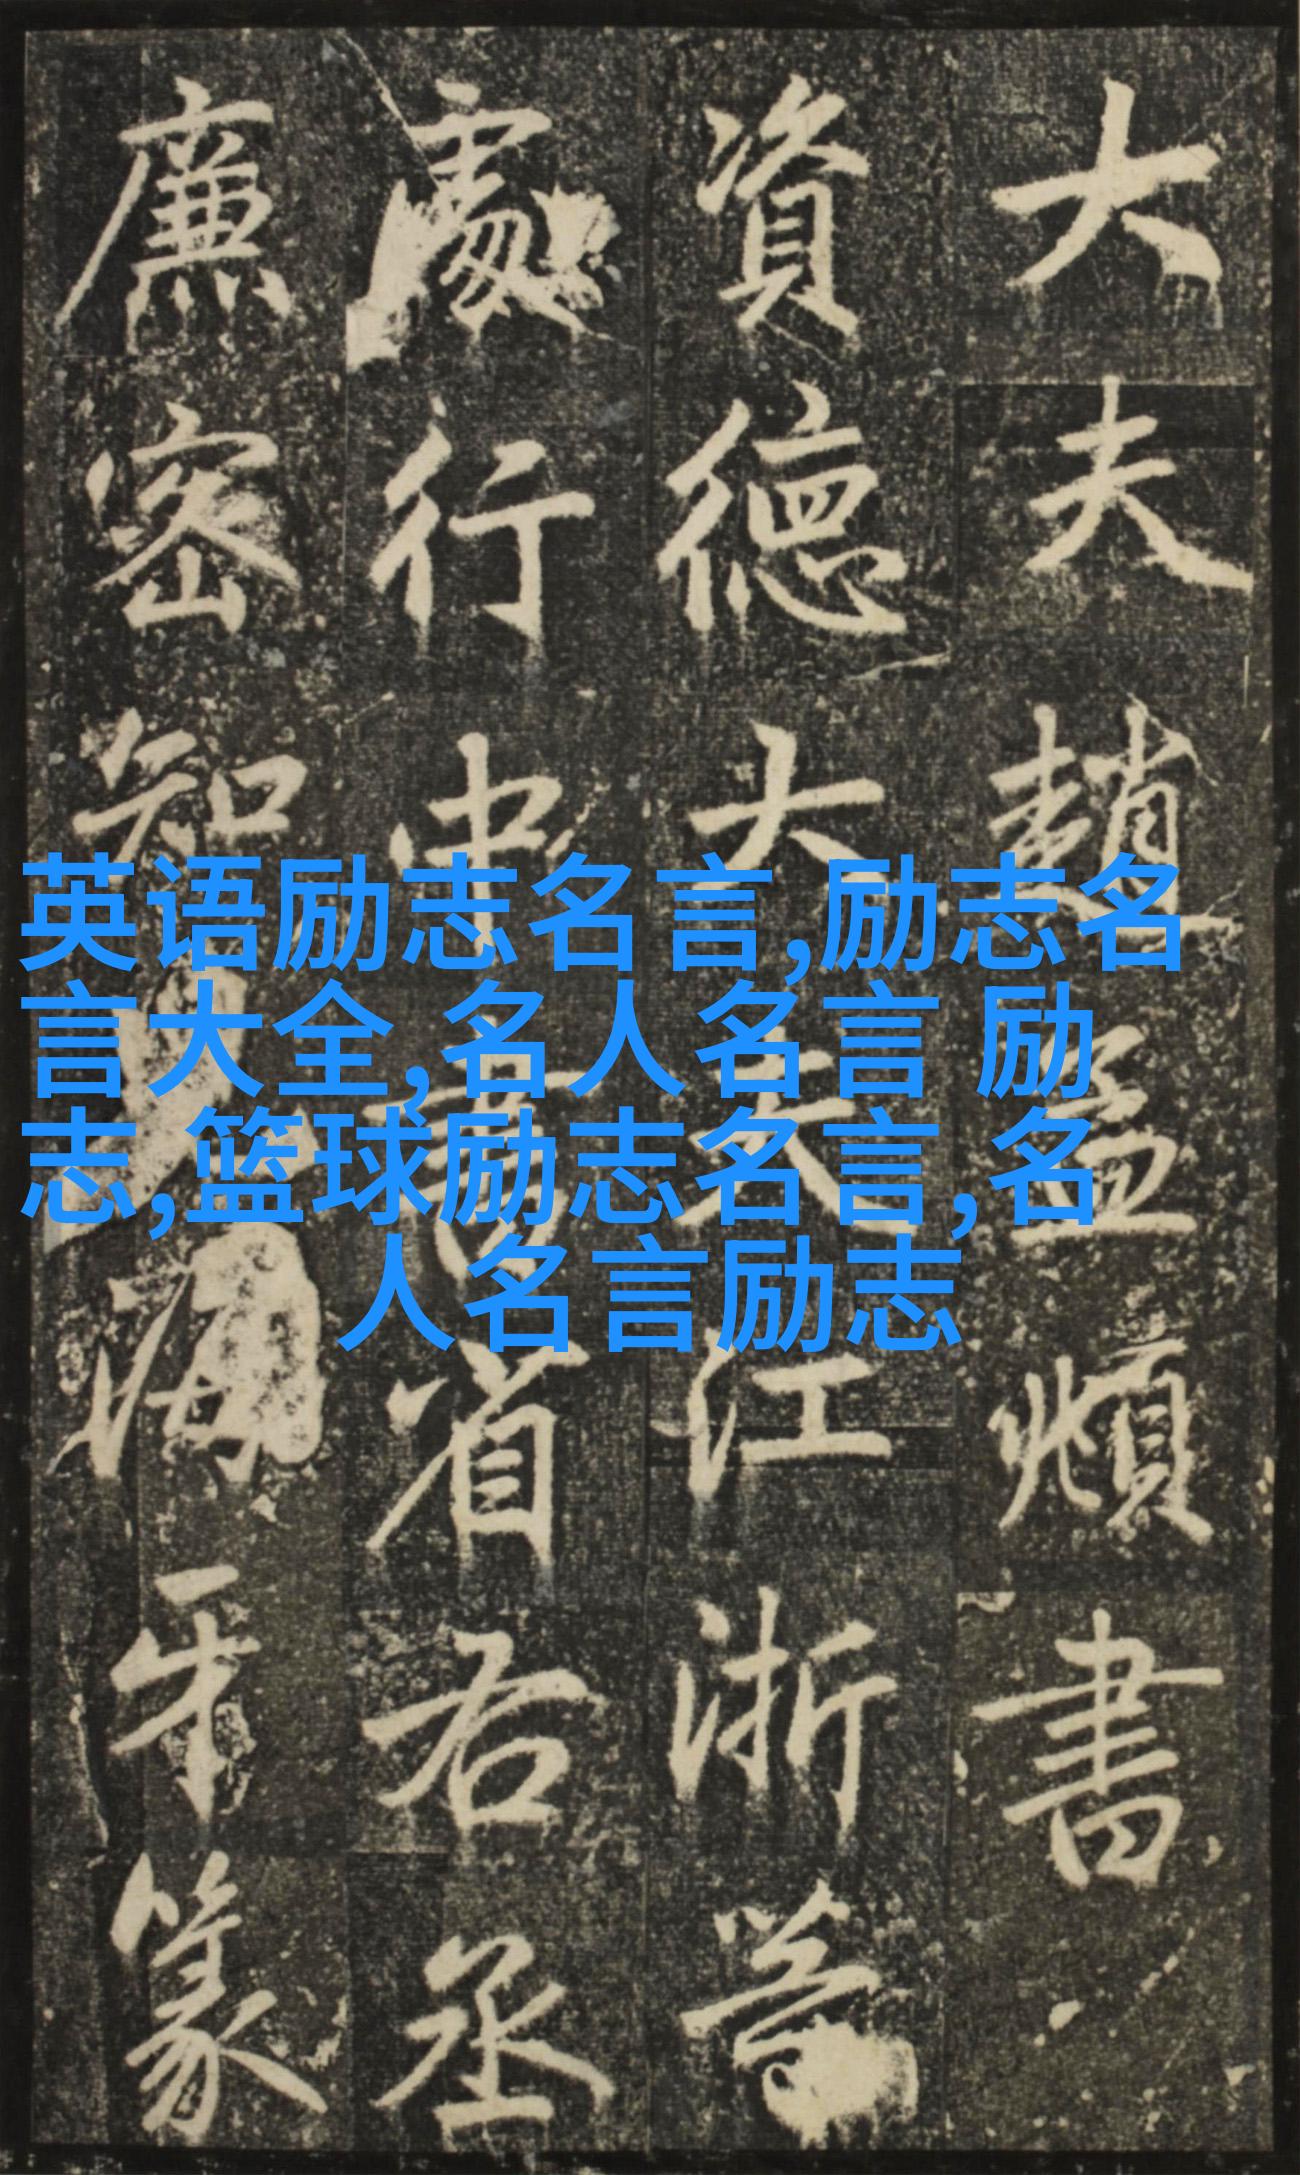 大夫趙孟頫書
資德大夫江浙等
處行中書省右丞
廉密知海牙篆
英语励志名言,励志名
言大全,名人名言 励
志,篮球励志名言,名
人名言励志